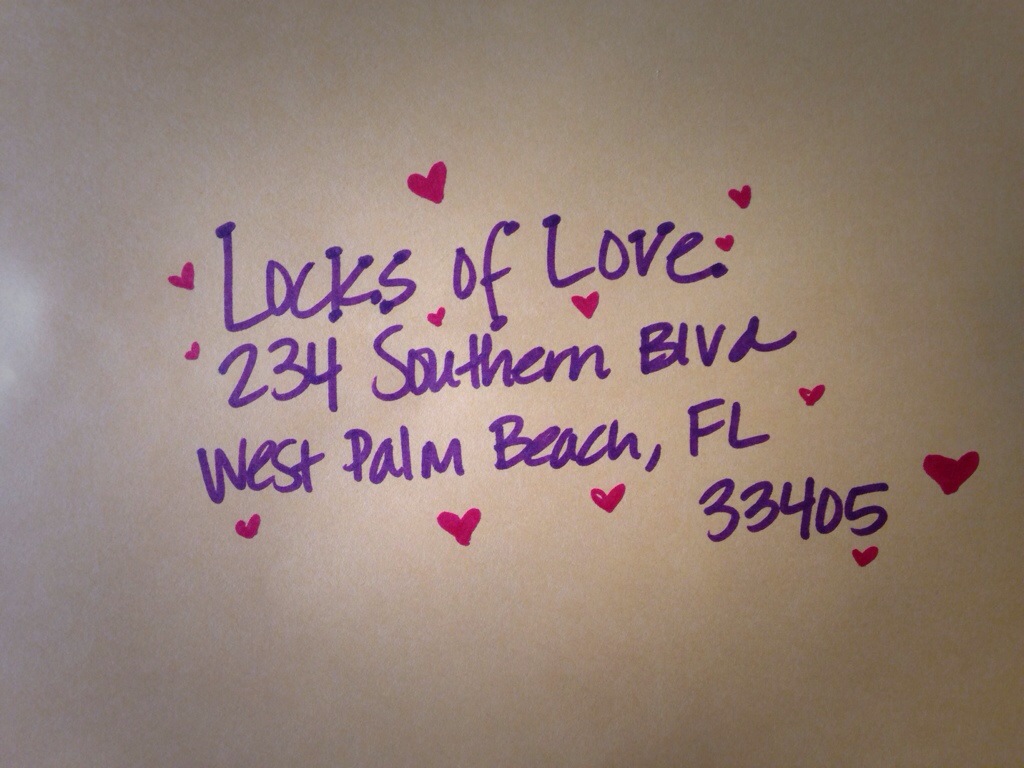 Locks of Love
234 Southern Blvd
West Palm Beach, FL
33405